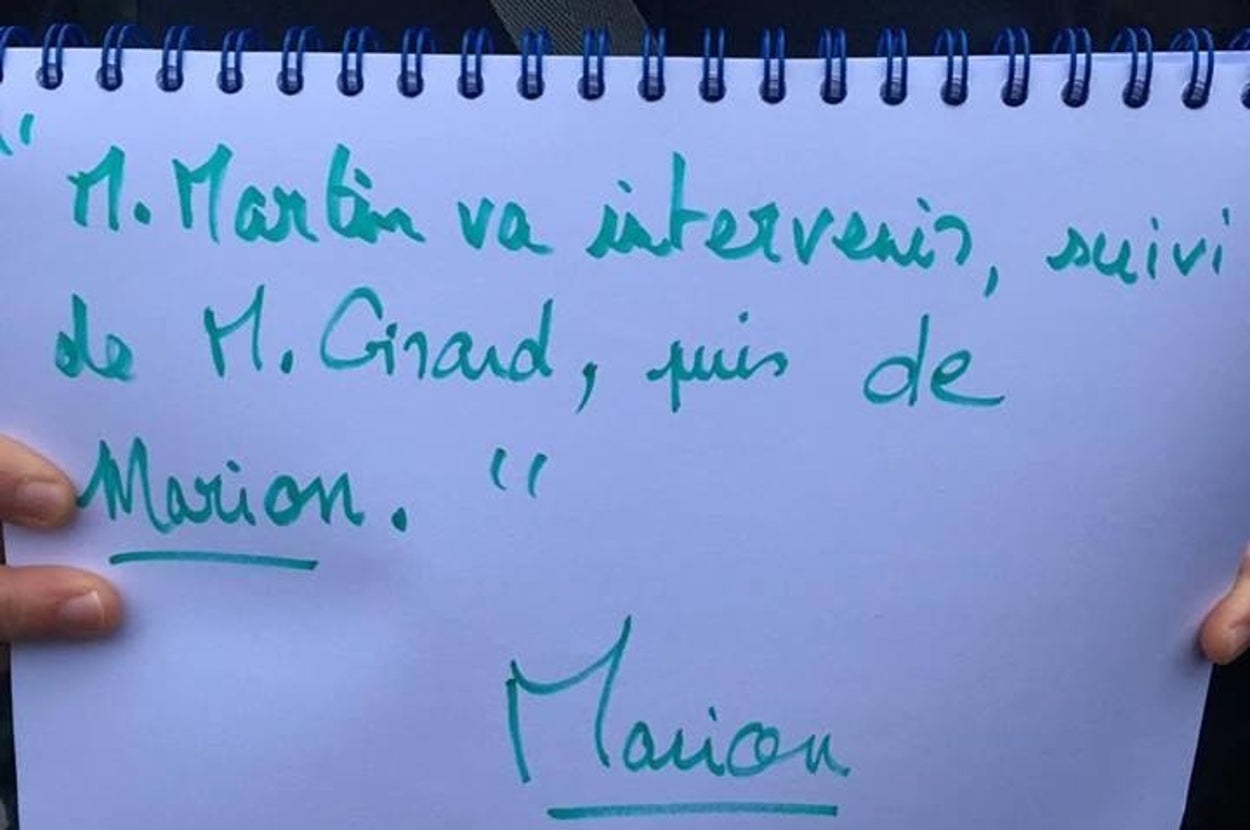 " M. Martin va intervenir, suivi
de M. Girard, puis de
Marion. "
Marion